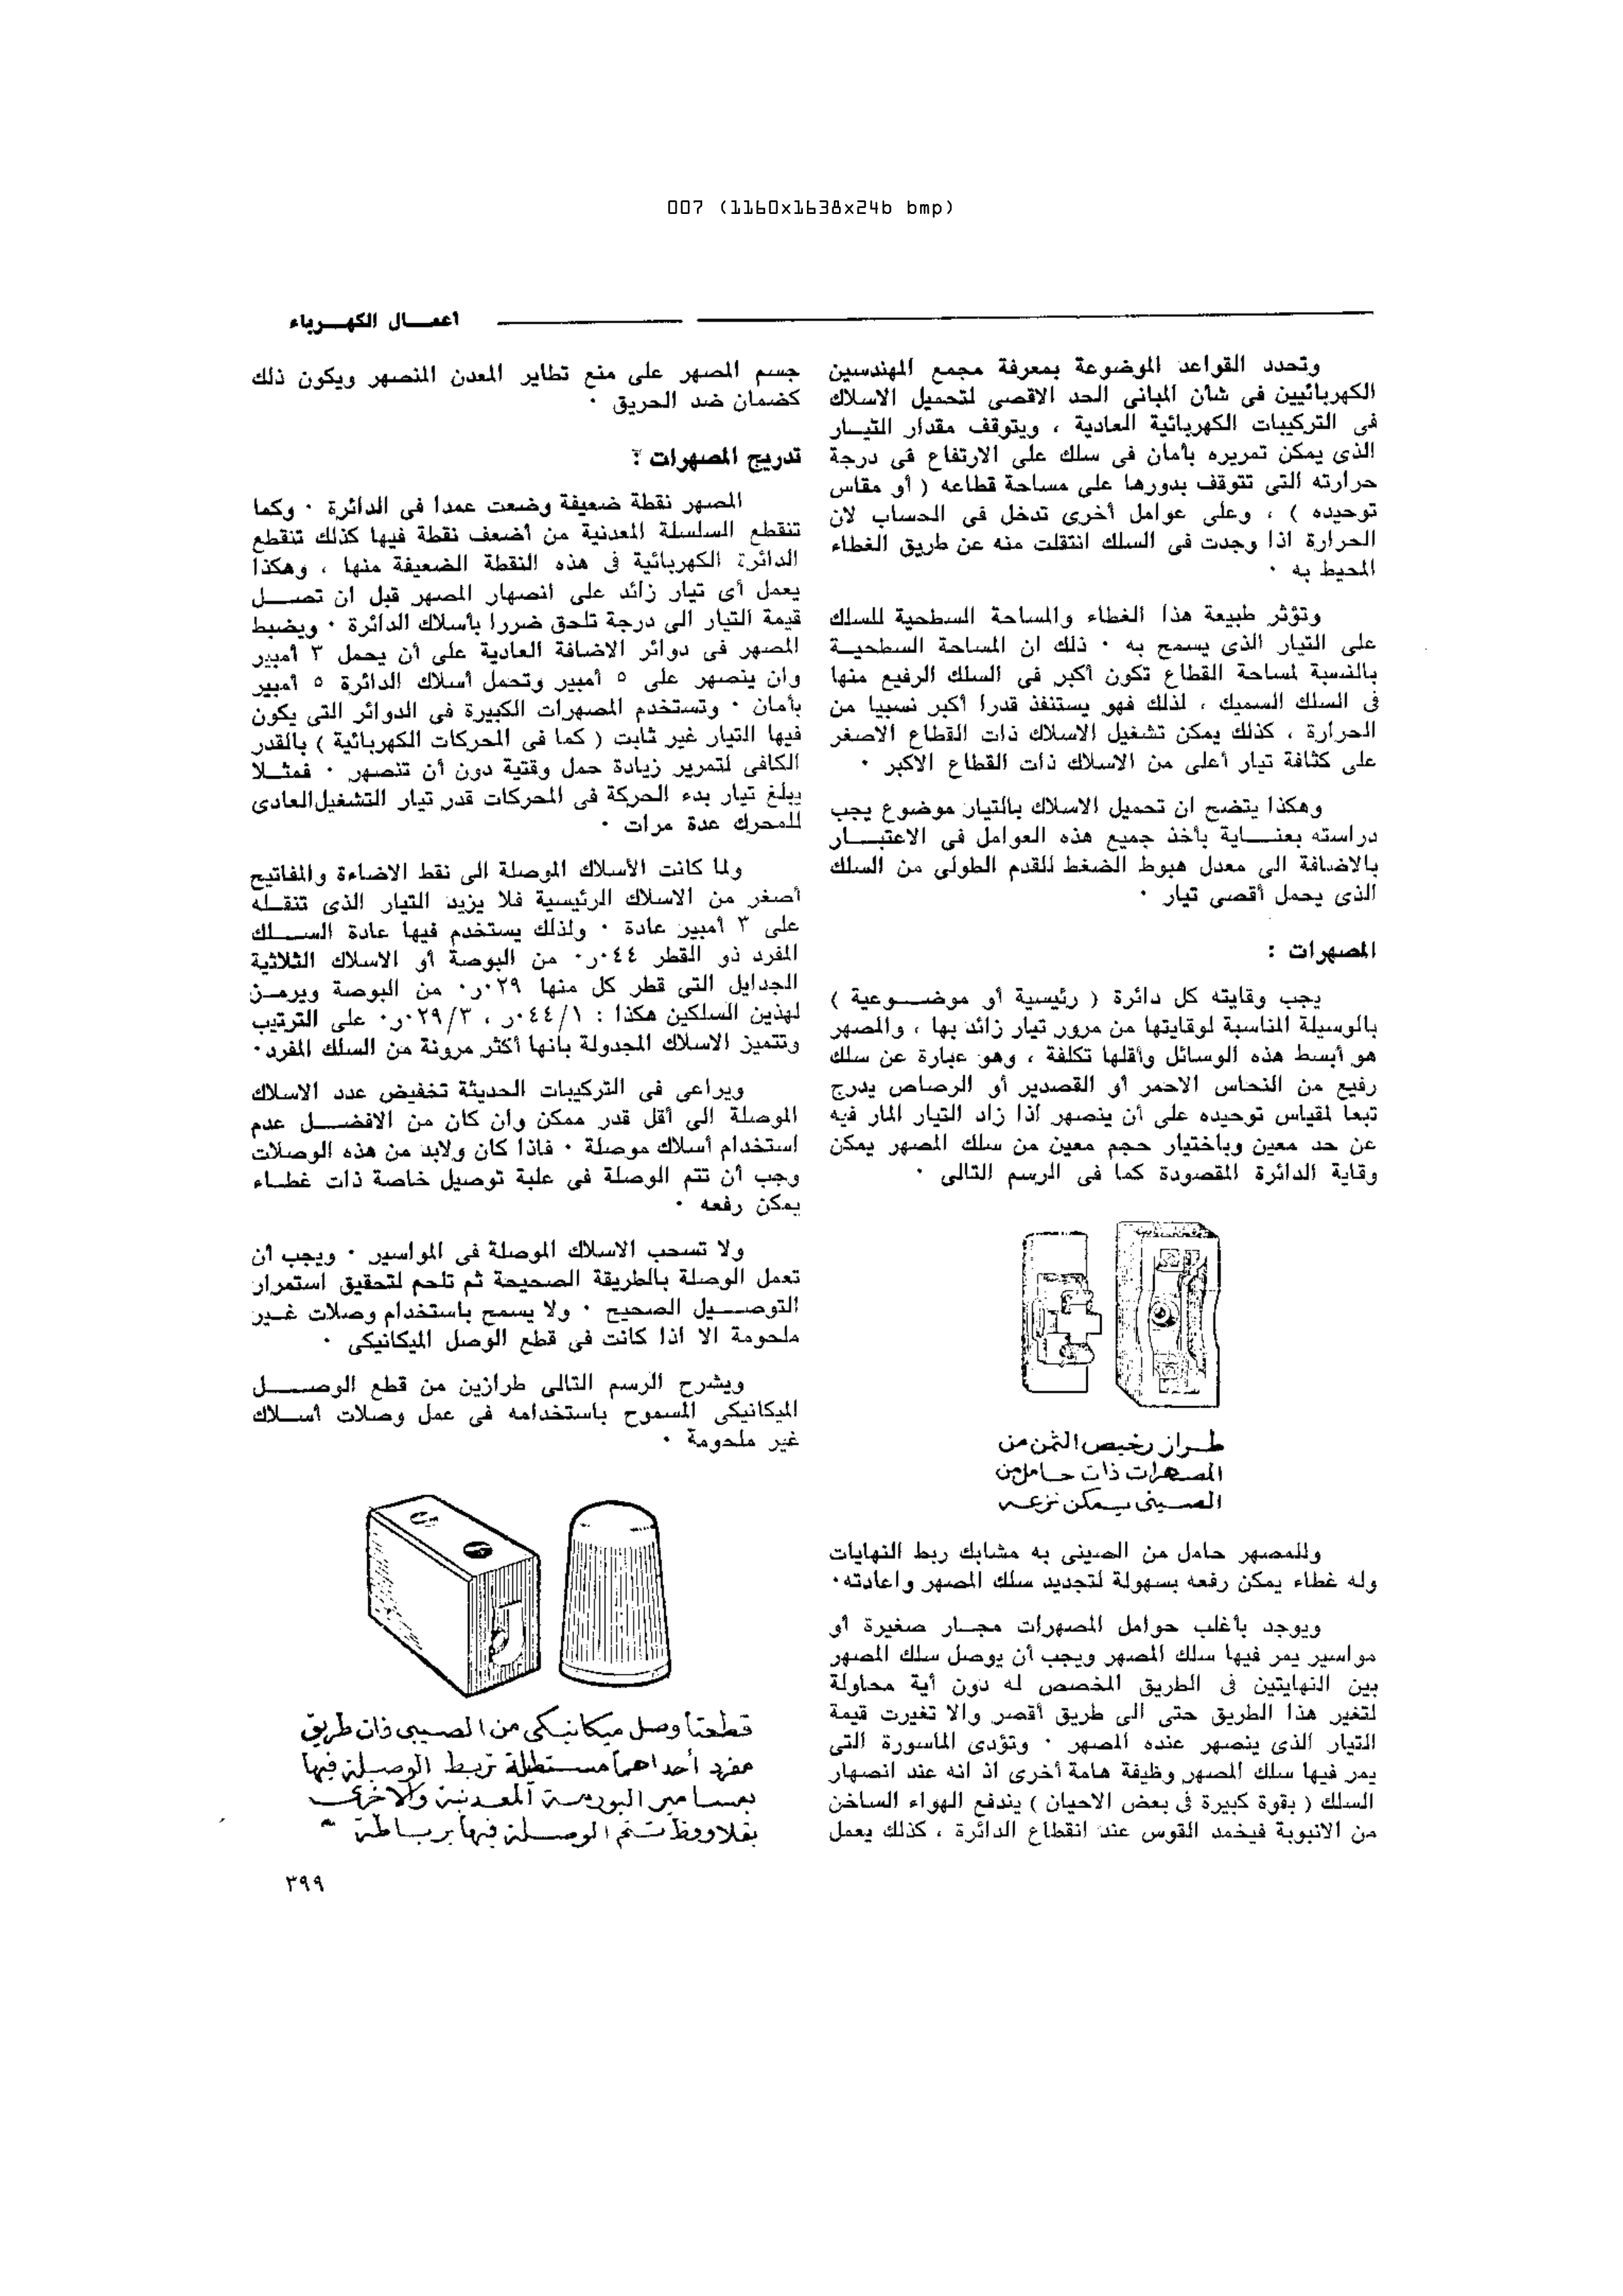 007 (1160x1638x24b bmp)
أعمـــال الكهـــرباء
وتحدد القواعد الموضوعة بمعرفة مجمع المهندسين
الكهربائيين فى شأن المبانى الحد الاقصى لتحميل الاسلاك
فى التركيبات الكهربائية العادية ، ويتوقف مقدار التيـــار
الذى يمكن تمريره بأمان فى سلك على الارتفاع فى درجة
حرارته التى تتوقف بدورها على مساحة قطاعه ( أو مقاس
توحيده ) ، وعلى عوامل أخرى تدخل فى الحساب لان
الحرارة اذا وجدت فى السلك انتقلت منه عن طريق الغطاء
المحيط به ·
وتؤثر طبيعة هذا الغطاء والمساحة السطحية للسلك
على التيار الذى يسمح به · ذلك ان المساحة السطحيـة
بالنسبة لمساحة القطاع تكون أكبر فى السلك الرفيع منها
فى السلك السميك ، لذلك فهو يستنفذ قدرا أكبر نسبيا من
الحرارة ، كذلك يمكن تشغيل الاسلاك ذات القطاع الاصغر
على كثافة تيار أعلى من الاسلاك ذات القطاع الاكبر ·
وهكذا يتضح ان تحميل الاسلاك بالتيار موضوع يجب
دراسته بعنـــاية بأخذ جميع هذه العوامل فى الاعتبـــار
بالاضافة الى معدل هبوط الضغط للقدم الطولى من السلك
الذى يحمل أقصى تيار ·
المصهرات :
يجب وقايته كل دائرة ( رئيسية أو موضـــوعية )
بالوسيلة المناسبة لوقايتها من مرور تيار زائد بها ، والمصهر
هو أبسط هذه الوسائل وأقلها تكلفة ، وهو عبارة عن سلك
رفيع من النحاس الاحمر أو القصدير أو الرصاص يدرج
تبعا لمقياس توحيده على أن ينصهر اذا زاد التيار المار فيه
عن حد معين وباختيار حجم معين من سلك المصهر يمكن
وقاية الدائرة المقصودة كما فى الرسم التالى ·
طـراز رخيص الثمن من
المصهرات ذات حـامل من
الصـينى يـمكن نزعـه
وللمصهر حامل من الصينى به مشابك ربط النهايات
وله غطاء يمكن رفعه بسهولة لتجديد سلك المصهر واعادته·
ويوجد بأغلب حوامل المصهرات مجـار صغيرة أو
مواسير يمر فيها سلك المصهر ويجب أن يوصل سلك المصهر
بين النهايتين فى الطريق المخصص له دون أية محاولة
لتغير هذا الطريق حتى الى طريق أقصر والا تغيرت قيمة
التيار الذى ينصهر عنده المصهر · وتؤدى الماسورة التى
يمر فيها سلك المصهر وظيفة هامة أخرى اذ انه عند انصهار
السلك ( بقوة كبيرة فى بعض الاحيان ) يندفع الهواء الساخن
من الانبوبة فيخمد القوس عند انقطاع الدائرة ، كذلك يعمل
جسم المصهر على منع تطاير المعدن المنصهر ويكون ذلك
كضمان ضد الحريق ·
تدريج المصهرات :
المصهر نقطة ضعيفة وضعت عمدا فى الدائرة · وكما
تنقطع السلسلة المعدنية من أضعف نقطة فيها كذلك تنقطع
الدائرة الكهربائية فى هذه النقطة الضعيفة منها ، وهكذا
يعمل أى تيار زائد على انصهار المصهر قبل ان تصـــل
قيمة التيار الى درجة تلحق ضررا بأسلاك الدائرة · ويضبط
المصهر فى دوائر الاضافة العادية على أن يحمل ٣ أمبير
وان ينصهر على ٥ أمبير وتحمل أسلاك الدائرة ٥ أمبير
بأمان · وتستخدم المصهرات الكبيرة فى الدوائر التى يكون
فيها التيار غير ثابت ( كما فى المحركات الكهربائية ) بالقدر
الكافى لتمرير زيادة حمل وقتية دون أن تنصهر · فمثـــلا
يبلغ تيار بدء الحركة فى المحركات قدر تيار التشغيل العادى
للمحرك عدة مرات ·
ولما كانت الأسلاك الموصلة الى نقط الاضاءة والمفاتيح
أصغر من الاسلاك الرئيسية فلا يزيد التيار الذى تنقـله
على ٣ أمبير عادة · ولذلك يستخدم فيها عادة الســـلك
المفرد ذو القطر ٠٤٤ر٠ من البوصة أو الاسلاك الثلاثية
الجدايل التى قطر كل منها ٠٢٩ر٠ من البوصة ويرمـز
لهذين السلكين هكذا : ٠٤٤/١ر ، ٠٢٩/٣ر٠ على الترتيب
وتتميز الاسلاك المجدولة بانها أكثر مرونة من السلك المفرد·
ويراعى فى التركيبات الحديثة تخفيض عدد الاسلاك
الموصلة الى أقل قدر ممكن وان كان من الافضـــل عدم
استخدام أسلاك موصلة · فاذا كان ولابد من هذه الوصلات
وجب أن تتم الوصلة فى علبة توصيل خاصة ذات غطـاء
يمكن رفعه ·
ولا تسحب الاسلاك الموصلة فى المواسير · ويجب أن
تعمل الوصلة بالطريقة الصحيحة ثم تلحم لتحقيق استمرار
التوصـــيل الصحيح · ولا يسمح باستخدام وصلات غـير
ملحومة الا اذا كانت فى قطع الوصل الميكانيكى ·
ويشرح الرسم التالى طرازين من قطع الوصـــل
الميكانيكى المسموح باستخدامه فى عمل وصلات أسـلاك
غير ملحومة ·
قطعتا وصل ميكانيكى من الصينى ذات طريق
مفرد أحداهما مستطيلة تربط الوصيلة فيها
بمسامير البوريـة المعدنية والاخرى
بقلاووظ تتم الوصـلة فيها بربـاطة
٣٩٩